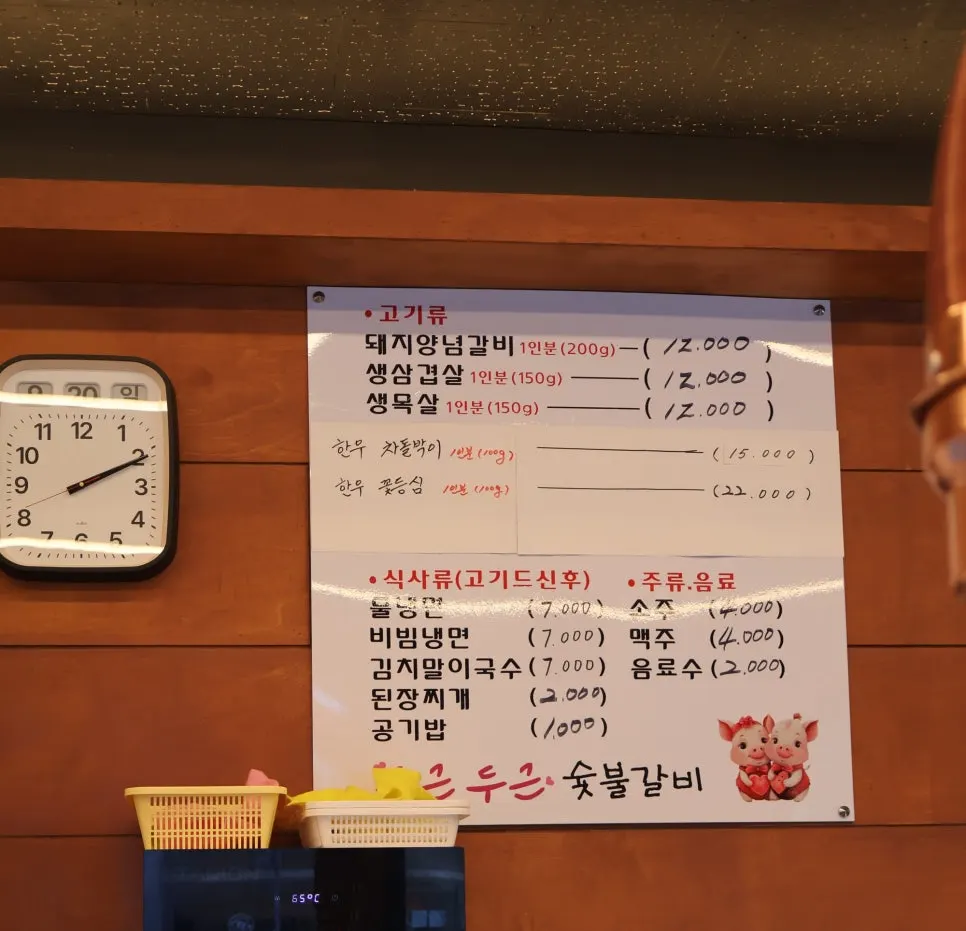 • 고기류
돼지양념갈비 1인분(200g) ( 12.000 )
생삼겹살 1인분(150g) ( 12.000 )
생목살 1인분(150g) ( 12.000 )
한우 차돌박이 1인분 (100g) ( 15.000 )
한우 꽃등심 1인분 (100g) ( 22.000 )
• 식사류(고기드신후)
물냉면 (7.000)
비빔냉면 (7.000)
김치말이국수 (7.000)
된장찌개 (2.000)
공기밥 (1,000)
• 주류.음료
소주 (4.000)
맥주 (4.000)
음료수 (2.000)
근 두근 숯불갈비
20 일
11 12 1
10 2
9 3
8 4
7 6 5
65°C